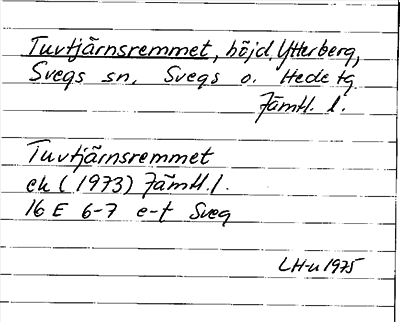 Tuvtjärnsremmet, höjd, Ytterberg,
Svegs sn. Svegs o. Hede tg
Jämtl. l.
Tuvtjärnsremmet
ek (1973) Jämtl. l.
16 E 6-7 e-f Sveg
LH-u 1975